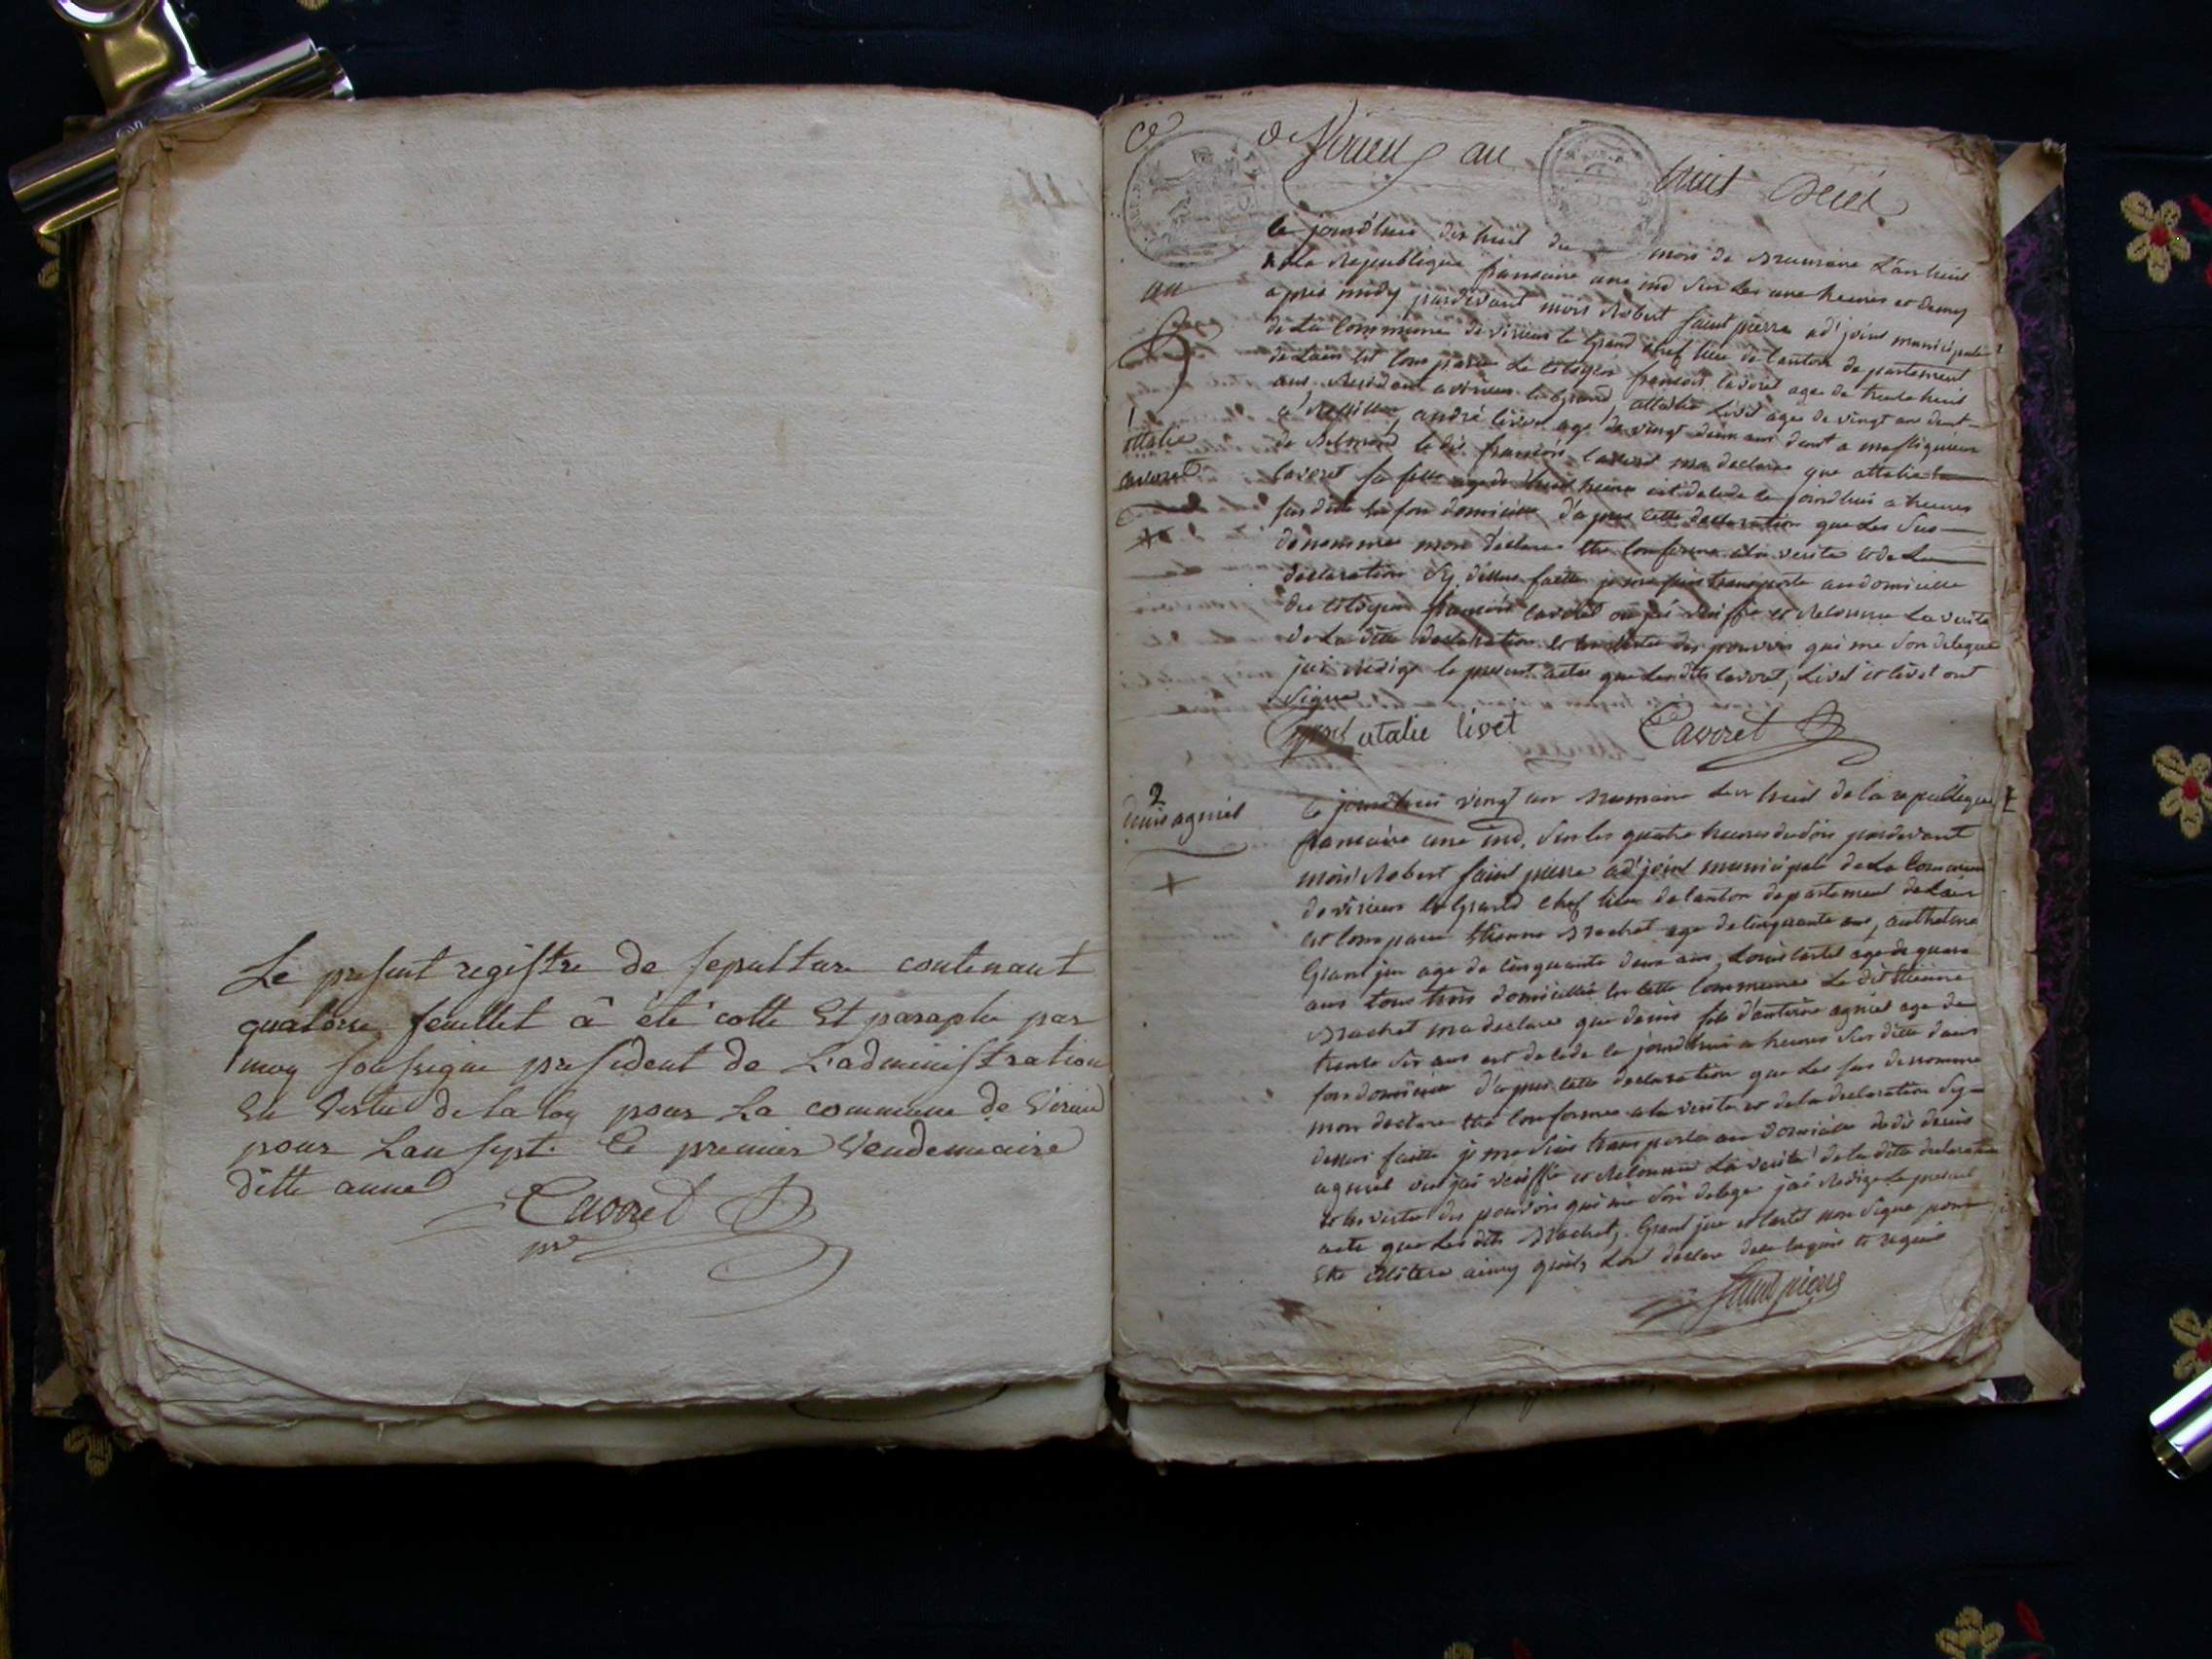 Le present registre de sepulture contenant
quatorze feuillet à été cotte Et paraphe par
moy soussigne president de L'administration
En Vertue de la loy pour La commune de Virieu
pour Lan sept. Ce premier Vendemiaire
ditte anné
Cavoret
pr
de Virieu au huit décés
Ce jourdhuis dix huit du mois de Brumaire L'an huit
de la Republique fransaise une ind sur Les une heures et demy
apres midy pardevant mois Robert saint pierre ad'joint municipale
de La Commune de virieus le Grand chef lieu de Canton departement
de Lain est Comparue Le Citoyen francois Cavoret age de trente huit
ans Residant a virieus le Grand, attalie Livet age de vingt ans
andré Livet age de vingt deux ans
de Belmond le dit francois Cavoret ma declare que attalie
Cavoret sa fille agé de huit heures est decede ce jourdhuis a heures
sus ditte en son domicille d'apres cette declaration que Les Sus
denommes mon declare Etre Conforme a la verite et de La
declaration Sy dessus faitte je me suis transporte au domicille
du Citoyen francois Cavoret ou jai veriffie et Reconnue La verite
de La ditte declaration et En vertue des pouvoirs qui me Son delegue
jai Redige le present acte que Les dits Cavoret, Livet et Livet ont
Signe
attalie
Cavoret
atalie livet Cavoret
2
denis agniel
Ce jourdhuis vingt un Brumaire Lan huit de la republique
fransaise une ind. Sur les quatre heures du Soir pardevant
mois Robert saint pierre ad'joint municipale de La Commune
de virieus le Grand chef lieu de Canton departement de Lain
est Comparue Etienne Brachet age de Cinquante ans, anthelme
Grand jean age de Cinquante deux ans, Louis Cartet age de
ans tous trois domicillié En Cette Commune Le dit Etienne
Brachet ma declare que denis fils d'antoine agniel age de
trente Six ans est decede Ce jourdhuis a heures Sus ditte dans
son domicille d'apres Cette declaration que Les sus denomme
mon declare Etre Conforme a la verite et de la declaration Sy
dessus faitte je me Suis transporte au domicille du dit denis
agniel ou jai veriffie et Reconnue La verite de la ditte declaration
et En vertue des pouvoirs qui me Son delege jai Redige Le present
acte que Les dits Brachet, Grand jean et Cartet non Signe pour
Etre illitere ainsy qu'ils Lont declare de ce enquis et requis
Saint pierre